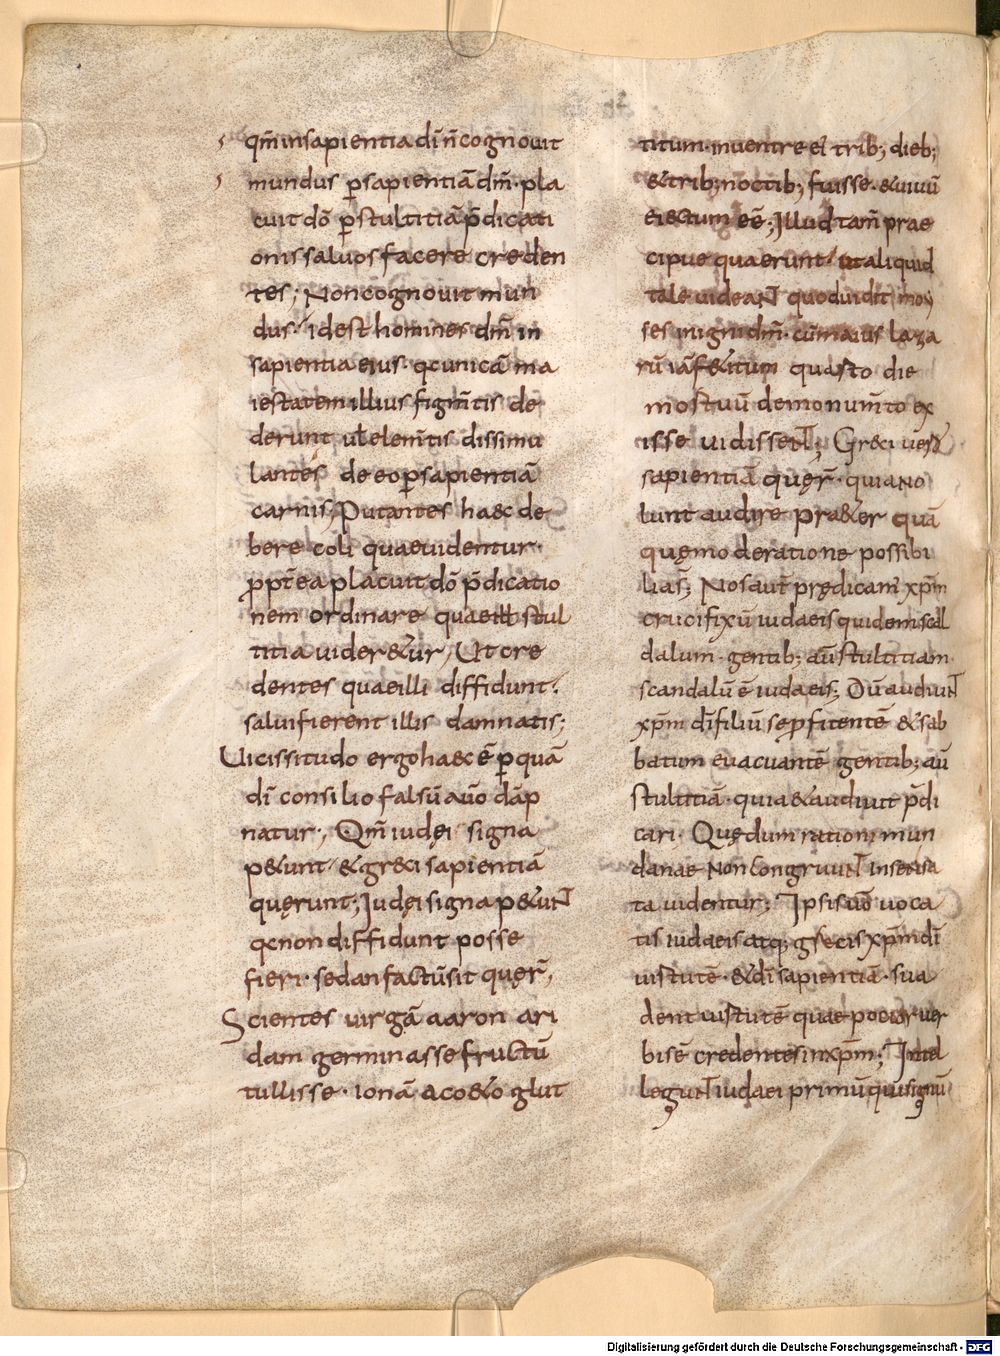 qm̄ insapientia dī ñcognouit
mundus p̱sapientiā dm̄· pla
cuit dō p̱stultitiā p̄dicati
onis saluos facere creden
tes; Noncognouit mun
dus· idest homines dm̄ in
sapientia eius· qcunicā ma
iestatem illius figm̄tis de
derunt ul̄ elem̄tis dissimu
lantes de eo p̱sapientiā
carnis; Putantes haec de
bere coli quaeuidentur·
ꝓpt̄ea placuit dō p̄dicatio
nem ordinare quae stul
titia uider&ur, Ut cre
dentes quaeilli diffidunt·
saluifierent illis damnatis;
Uicissitudo ergo haec ē p̱ quā
dī consilio falsū auō dāp
natur·, Qm̄ iudęi signa
p&unt· & gr&ci sapientiā
quęrunt; Iudęi signa p&uNT
qcnon diffidunt posse
fieri· sed an factūsit quęr̄,
Scientes uirgā aaron ari
dam germinasse fructū
tullisse· ionā aco&o glut
titum· inuentre ei trib; dieb;
&trib; noctib; fuisse· &uiuū
eiectum eē; Illud tam̄ prae
cipue quaerunt· ut aliquid
tale uideaNT quoduidit moy
ses inigni dm̄· cūmaius laza
rū iā f&itum quarto die
mortuū demonum̄to ex
isse uidisseNT; Gr&ci uero
sapientiā quęr̄· quiaNo
lunt audire pr&er quā
quęmo deratione possibi
lias̄; Nosaut̄ prędicam̄ xp̄m
crucifixū iudaeis quidem scan
dalum· gentib; aū stultitiam·
scandalū ē iudaeis; Dū audiuNT
xp̄m dī filiū se ꝓfitentē &sab
batum euacuantē gentib; aū
stultitiā· quia &audiunt p̄di
cari· Quędum rationi mun
danae NonCongruuNT Insensa
ta uidentur; Ipsis uō uoca
tis iudaeis atq; grecis xp̄m dī
uirtutē· &dī sapientiā· sua
dent uirtutē quae pocior uer
bis ē credentes inxp̄m; Intel
leguNT iudaei primū quiasignū